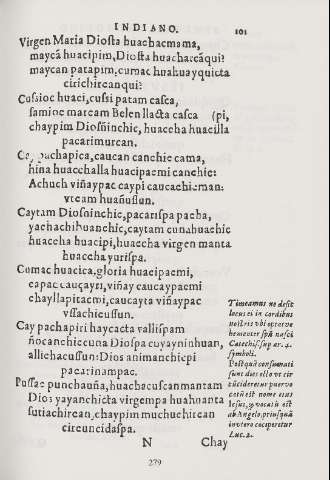 INDIANO. 101
Virgen Maria Diosta huachacmama,
maycã huacipim, Diosta huacharcãqui?
maycan patapim, cumac huahuayquicta
cirichircanqui?
Cussioc huaci, cussi patam casca,
samioc marcam Belen llacta casca (pi,
chaypim Diosñinchic, huaccha huacilla
pacarimurcan.
pachapica, caucan canchic cama,
hina huacchalla huacipaemi canchic:
Achuch viñaypac caypi caucachiman:
vteam huañussun.
Caytam Diosñinchic, pacarispa pacha,
yachachihuanchic, caytam cunahuachic
huaccha huacipi, huaccha virgen manta
huaccha yurispa.
Cumac huacica, gloria huacipacmi,
capac cauçayri, viñay caucaypacmi
chayllapitacmi, caucayta viñaypac
vssachicussun.
Cay pachapiri haycacta vallispam
ñocanchiccuna Diospa cuyayninhuan,
allichacussun: Dios animanchicpi
pacarinampac.
Pussac punchauña, huachacuscanmantam
Dios yayanchicta virgempa huahuanta
sutiachircan, chaypim muchuchircan
circuncidaspa.
Timeamus ne desit
locus ei in cordibus
nostris vbi
hementer spũ nasci
Catechis. sup ar. 4.
symboli.
Postquã consumati
sunt dies octo vt cir
cũcideretur puer vo
catũ est nome eius
Iesus, q̃ vocatũ est
ab Angelo, priusquã
in vtero conciperetur
Luc. 2.
N Chay
279